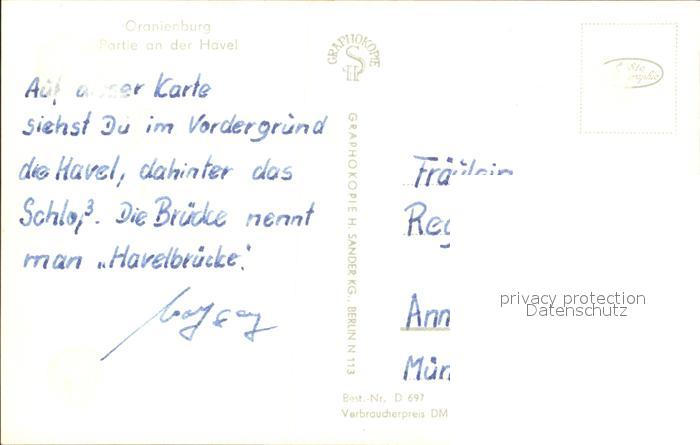 Oranienburg
Partie an der Havel
Auf dieser Karte
siehst Du im Vordergrund
die Havel, dahinter das
Schloß. Die Brücke nennt
man „Havelbrücke".
GRAPHOKOPIE
H S
GRAPHOKOPIE H. SANDER KG., BERLIN N 113
Fräulein
Reg
Ann
Mün
privacy protection
Datenschutz
Best.-Nr. D 697
Verbraucherpreis DM